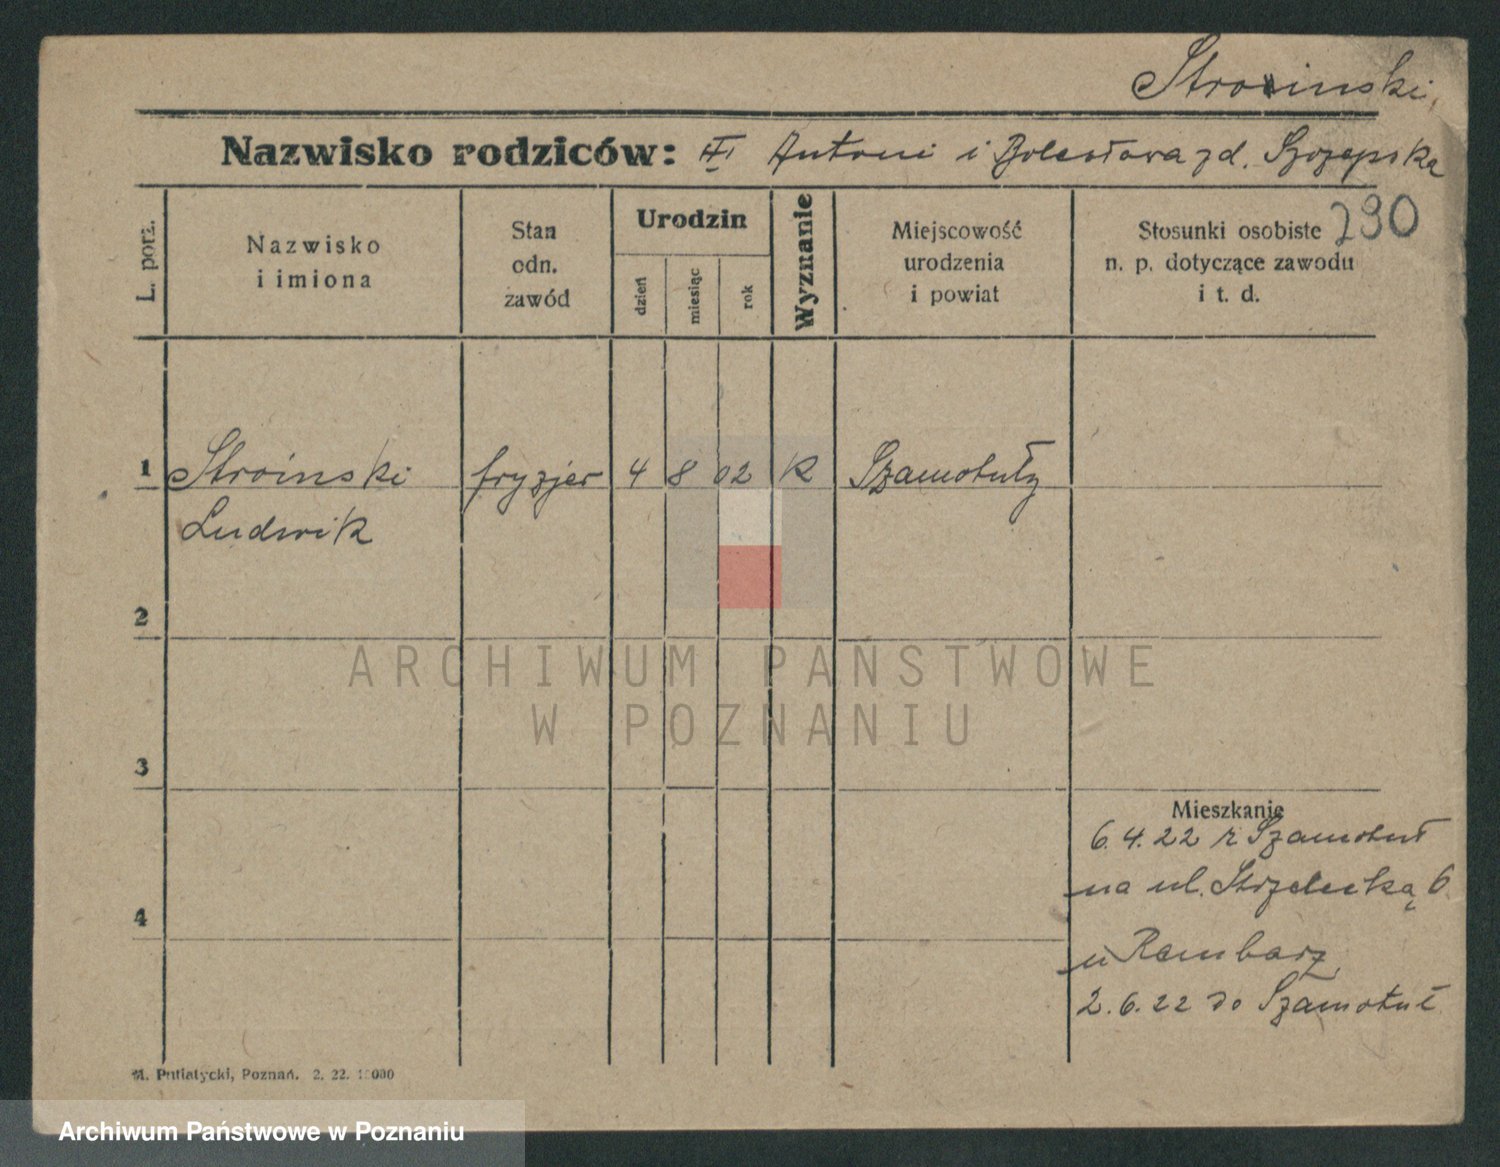 Stroinski
Nazwisko rodziców: Antoni i Bolesława zd. Szczepska
290
L. porz.
Nazwisko
i imiona
Stan
odn.
zawód
Urodzin
dzień
miesiąc
rok
Wyznanie
Miejscowość
urodzenia
i powiat
Stosunki osobiste
n. p. dotyczące zawodu
i t. d.
1 Stroinski fryzjer 4 8 02 K Szamotuły
Ludwik
2
ARCHIWUM PAŃSTWOWE
W POZNANIU
3
Mieszkanie
6.4.22 z Szamotuł
na ul. Strzelecką 6
4
u Rembarz
2.6.22 do Szamotuł
M. Putiatycki, Poznań. 2. 22. 10000
Archiwum Państwowe w Poznaniu